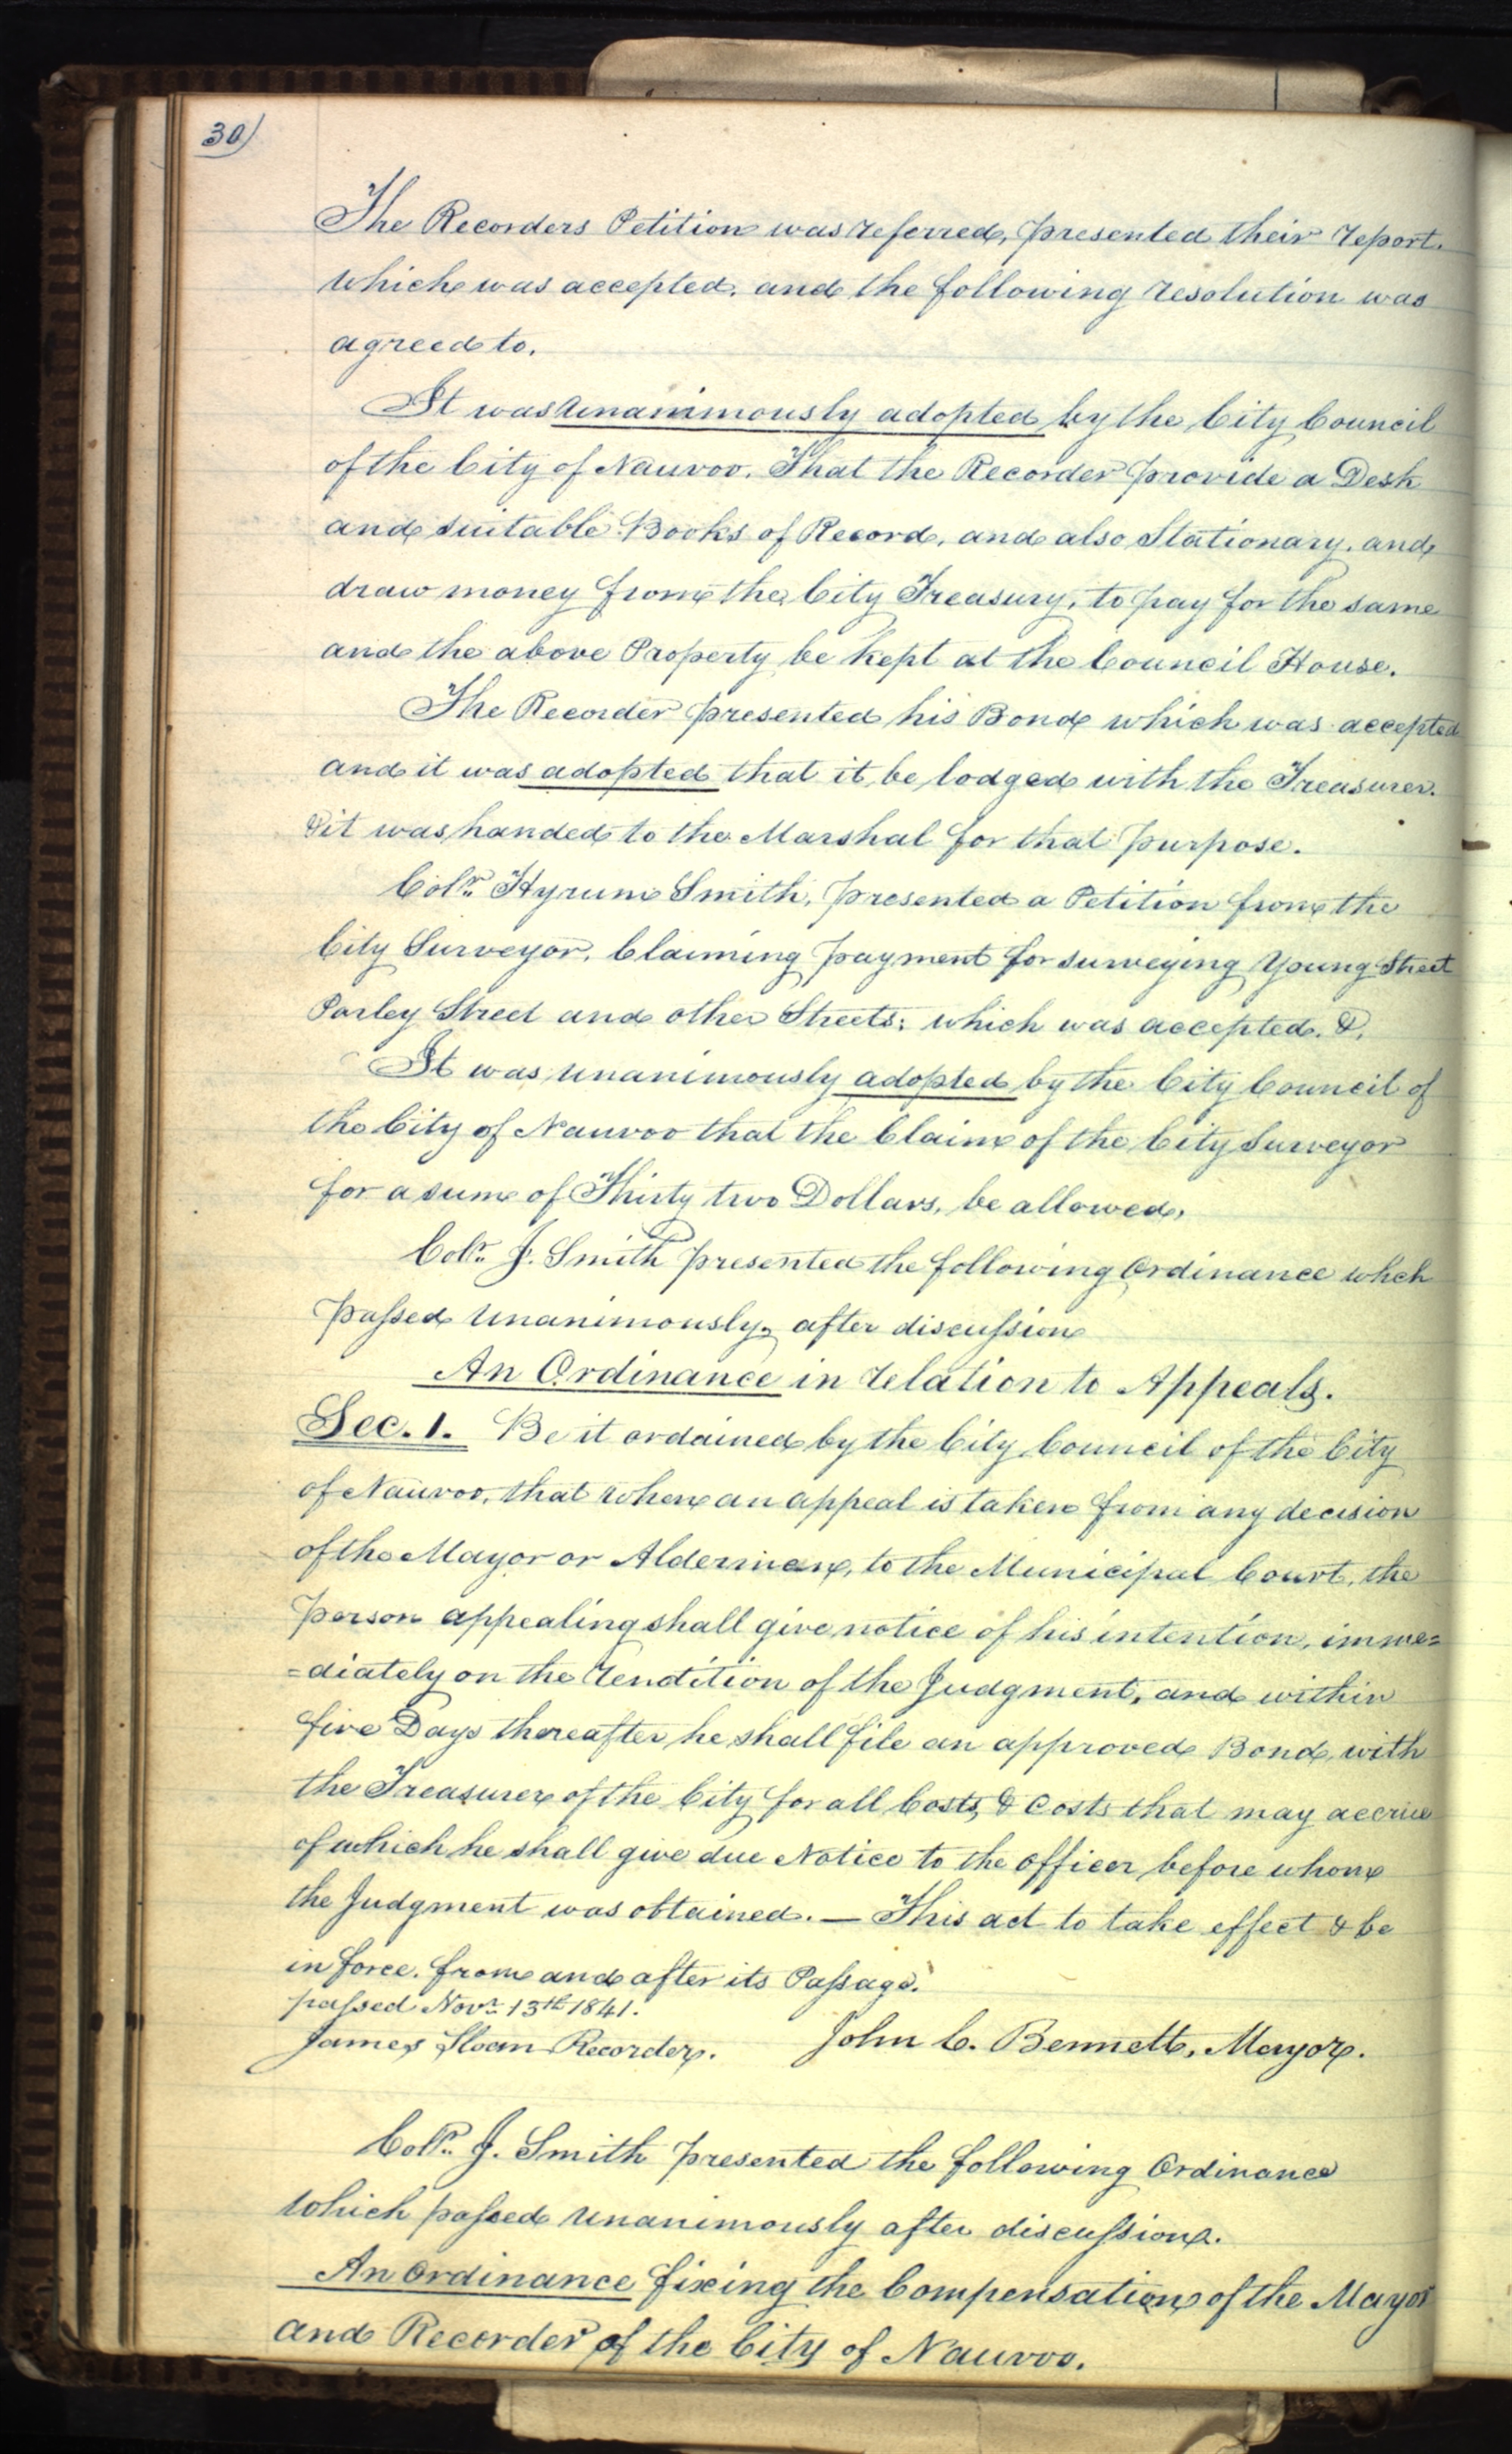 30)
The Recorders Petition was referred, presented their report.
which was accepted. and the following resolution was
agreed to.
It was unanimously adopted by the City Council
of the City of Nauvoo. That the Recorder provide a Desk
and suitable Books of Record, and also Stationary. and
draw money from the City Treasury, to pay for the same
and the above Property be kept at the Council House.
The Recorder presented his Bond which was accepted
and it was adopted that it be lodged with the Treasurer.
& it was handed to the Marshal for that purpose.
Colr. Hyrum Smith, presented a Petition from the
City Surveyor, Claiming payment for surveying Young Street
Parley Street and other Streets; which was accepted. &.
It was unanimously adopted by the City Council of
the City of Nauvoo that the Claim of the City Surveyor
for a sum of Thirty two Dollars, be allowed,
Colr. J. Smith presented the following Ordinance whch
passed unanimously, after discussion
An Ordinance in relation to Appeals.
Sec. 1. Be it ordained by the City Council of the City
of Nauvoo, that when an appeal is taken from any decision
of the Mayor or Alderman, to the Municipal Court, the
person appealing shall give notice of his intention, imme=
=diately on the rendition of the Judgment, and within
five Days thereafter he shall file an approved Bond, with
the Treasurer of the City for all Costs, & Costs that may accrue
of which he shall give due Notice to the officer before whom
the Judgment was obtained. — This act to take effect & be
in force. from and after its Passage.
passed Novr. 13th 1841.
James Sloan Recorder. John C. Bennett, Mayor.
Colr. J. Smith presented the following Ordinance
which passed unanimously after discussion.
An Ordinance fixing the Compensation of the Mayor
and Recorder of the City of Nauvoo.